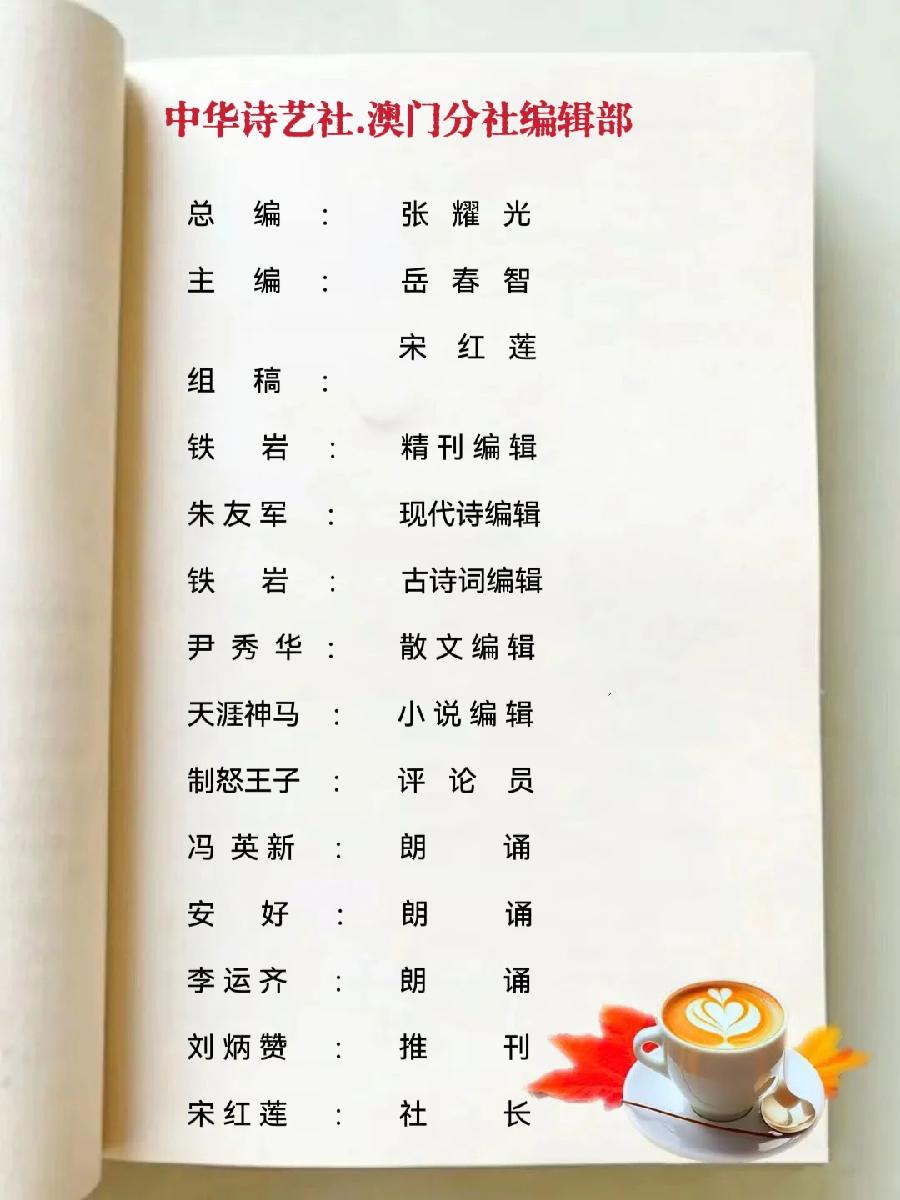 中华诗艺社.澳门分社编辑部
总 编 : 张 耀 光
主 编 : 岳 春 智
宋 红 莲
组 稿 :
铁 岩 : 精 刊 编 辑
朱 友 军 : 现代诗编辑
铁 岩 : 古诗词编辑
尹 秀 华 : 散 文 编 辑
天涯神马 : 小 说 编 辑
制怒王子 : 评 论 员
冯 英 新 : 朗 诵
安 好 : 朗 诵
李 运 齐 : 朗 诵
刘 炳 赞 : 推 刊
宋 红 莲 : 社 长